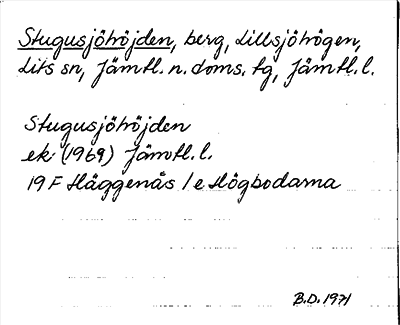 Stugusjöhöjden, berg, Lillsjöhögen,
Lits sn, Jämtl. n. doms. tg, Jämtl. l.
Stugusjöhöjden
ek. (1969) Jämtl. l.
19 F Häggenås 1 e Högbodarna
B.D. 1971